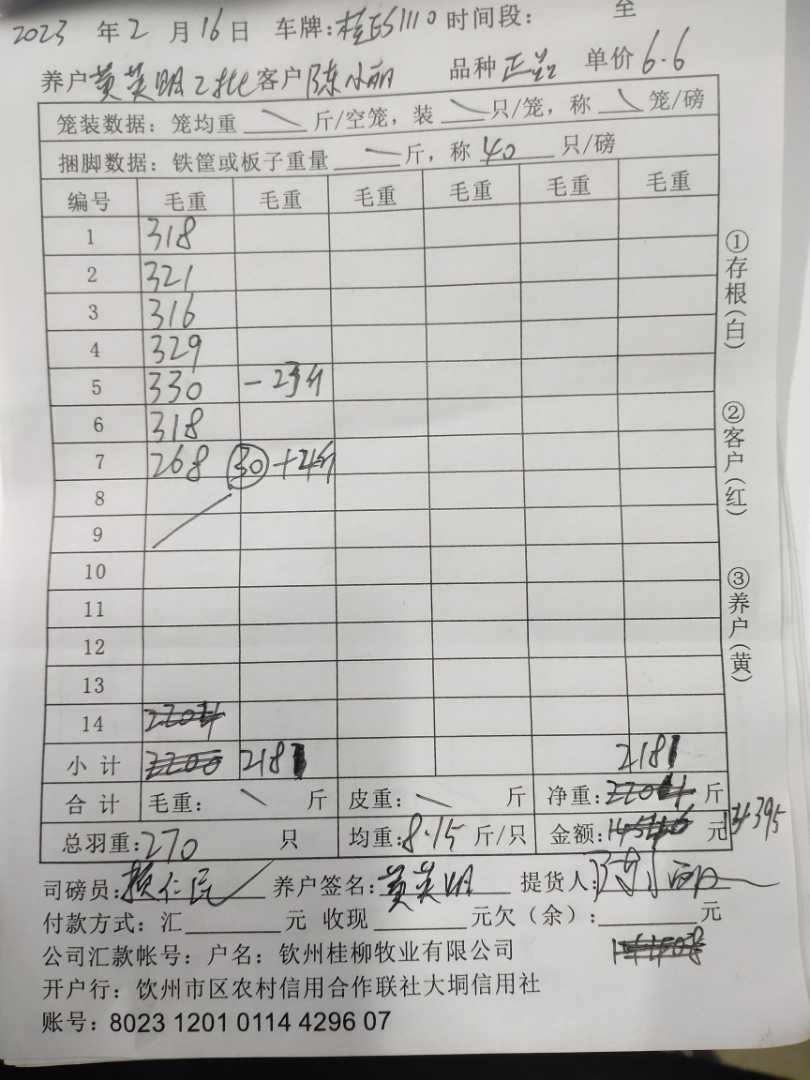 2023 年 2 月 16 日 车牌: 桂E51110 时间段: 至
养户 黄英明 2批 客户 陈小丽 品种 正茁 单价 6.6
笼装数据: 笼均重 \ 斤/空笼, 装 \ 只/笼, 称 \ 笼/磅
捆脚数据: 铁筐或板子重量 \ 斤, 称 40 只/磅
编号 毛重 毛重 毛重 毛重 毛重 毛重
1 318
2 321
3 316
4 329
5 330 -23斤
6 318
7 268 30 +4斤
8
9
10
11
12
13
14
小计 2181 2181
合计 毛重: \ 斤 皮重: \ 斤 净重: 斤
总羽重: 270 只 均重: 8.15 斤/只 金额: 元 14395
司磅员: 养户签名: 黄英明 提货人: 陈小丽
付款方式: 汇 元 收现 元欠(余): 元
公司汇款帐号: 户名: 钦州桂柳牧业有限公司
开户行: 钦州市区农村信用合作联社大垌信用社
账号: 8023 1201 0114 4296 07
①存根(白)
②客户(红)
③养户(黄)